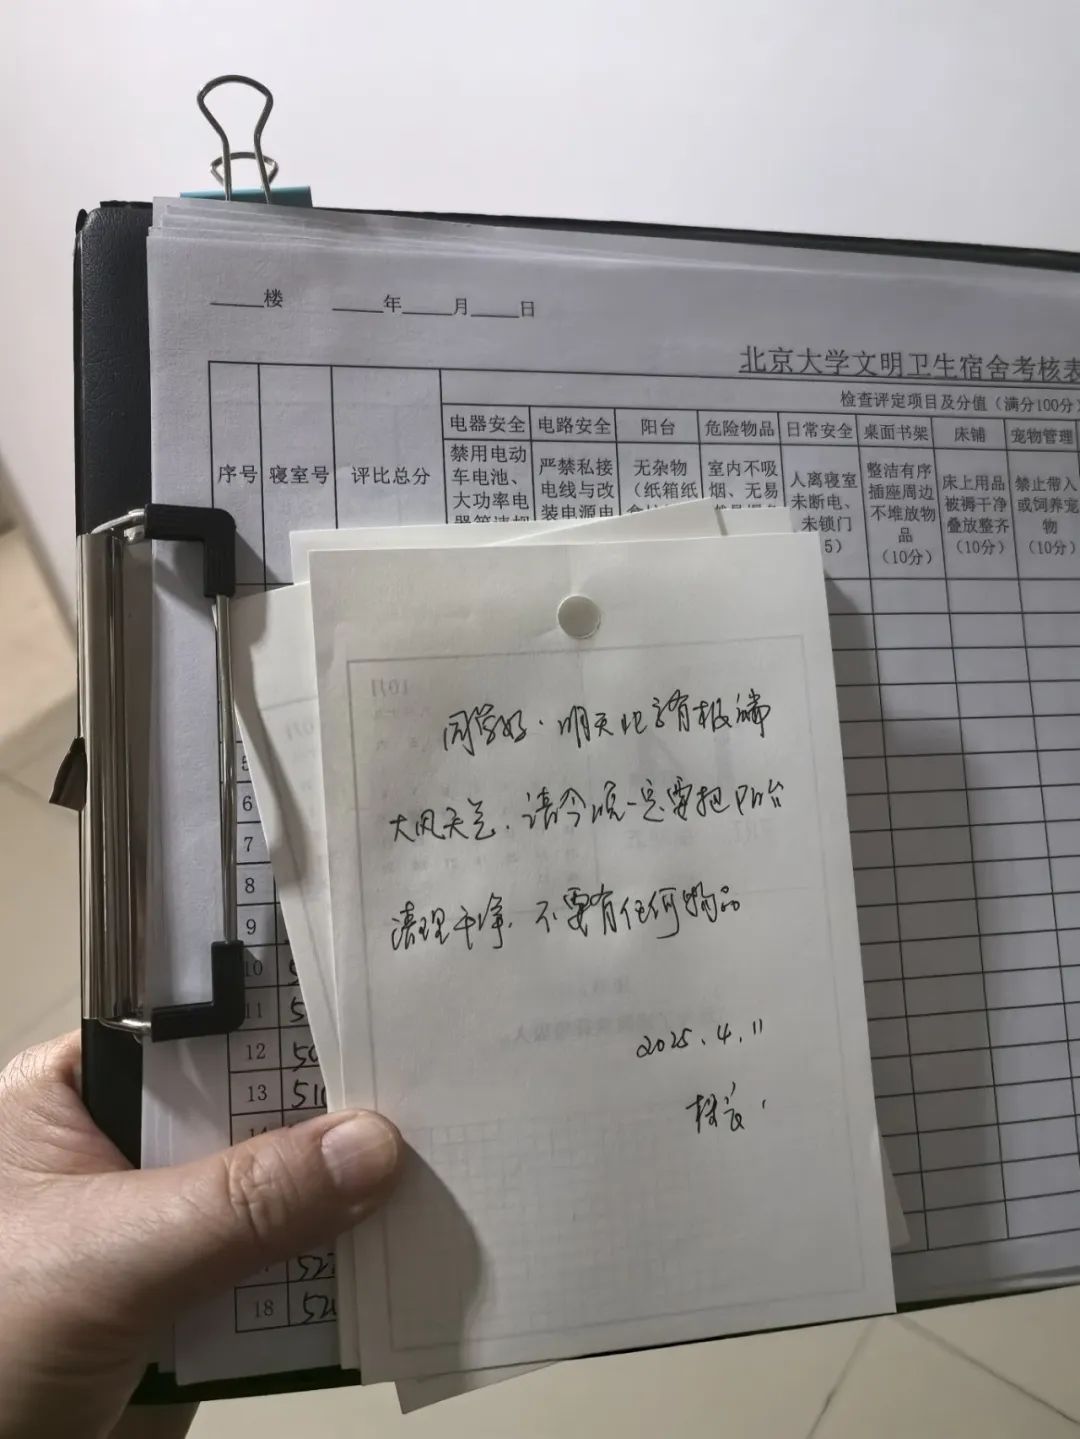 ____楼 ____年____月____日
北京大学文明卫生宿舍考核表
检查评定项目及分值（满分100分）
序号 寝室号 评比总分
电器安全 电路安全 阳台 危险物品 日常安全 桌面书架 床铺 宠物管理
禁用电动车电池、大功率电
严禁私接电线与改装电源电
无杂物（纸箱纸
室内不吸烟、无易
人离寝室未断电、未锁门
5）
整洁有序插座周边不堆放物品（10分）
床上用品被褥干净叠放整齐（10分）
禁止带入或饲养宠物（10分）
同学好.明天北京有极端
大风天气.请今晚一定要把阳台
清理干净.不要有任何物品
2025.4.11
楼长.
5
6
7
8
9
10
11
12
13 510
18